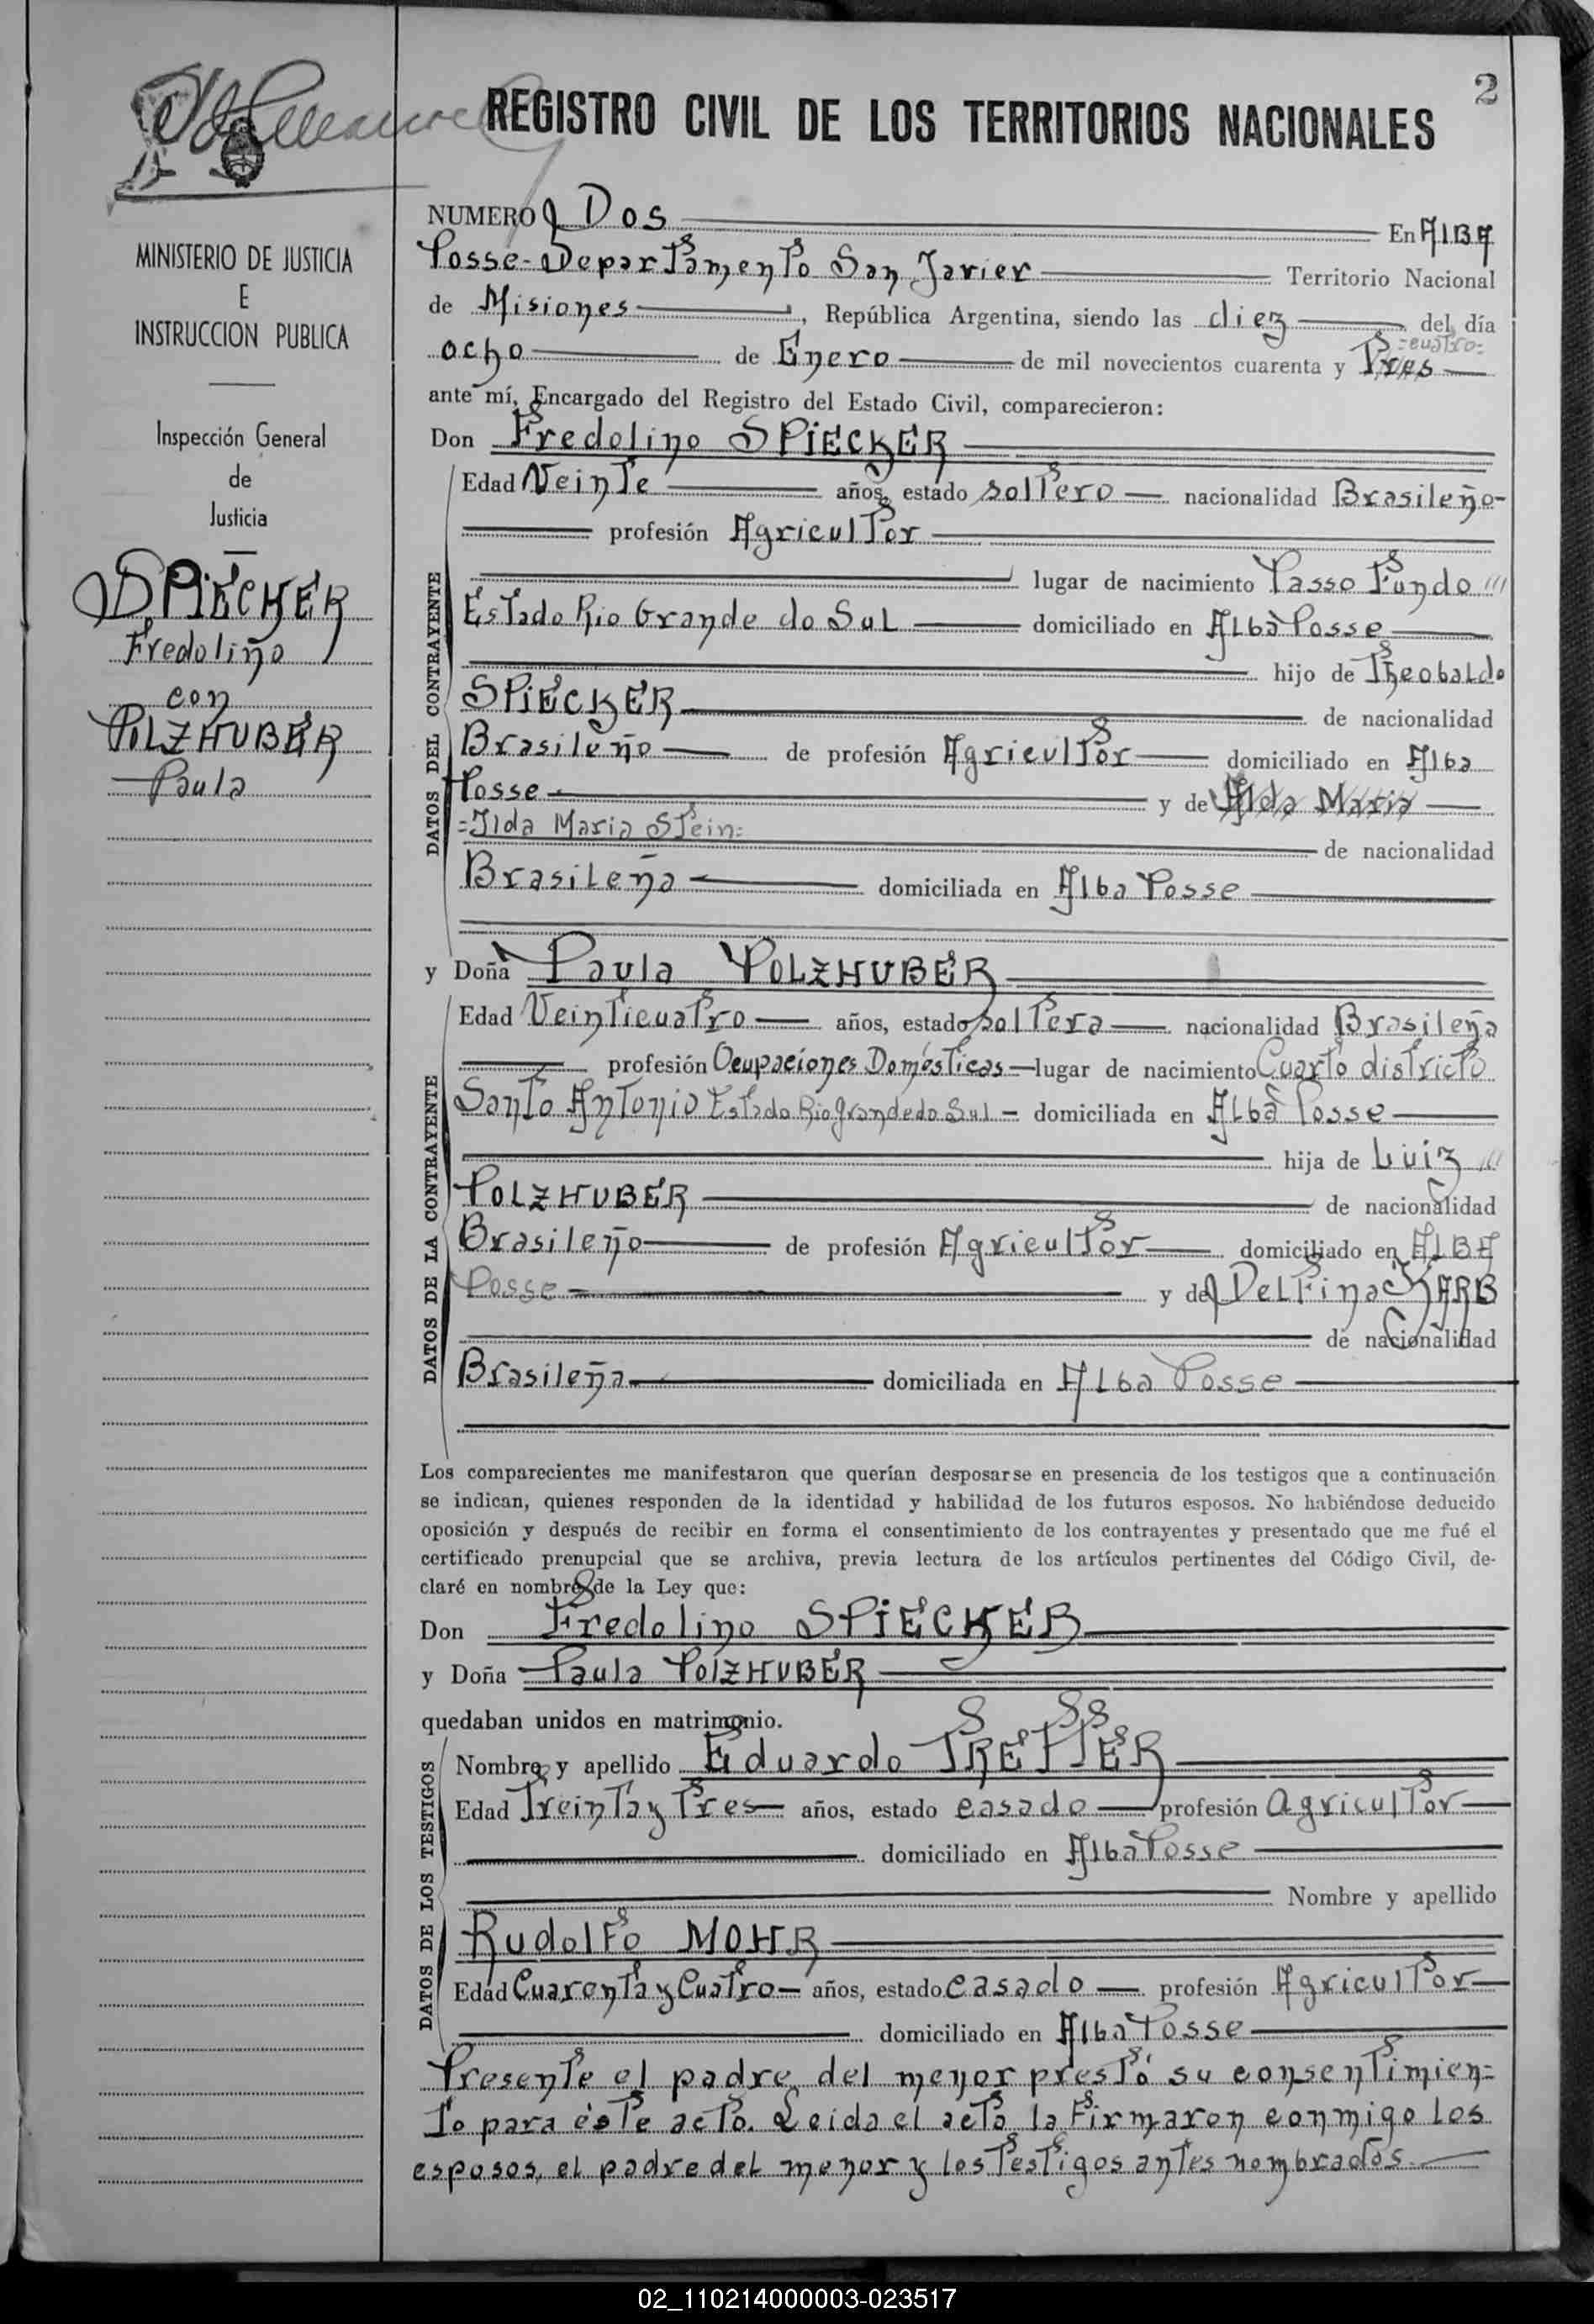 2
REGISTRO CIVIL DE LOS TERRITORIOS NACIONALES
MINISTERIO DE JUSTICIA
E
INSTRUCCION PUBLICA
Inspección General
de
Justicia
SPiECKER
Fredoliño
con
POLZHUBER
Paula
NUMERO Dos En AlBA
Posse-Departamento San Javier Territorio Nacional
de Misiones, República Argentina, siendo las diez del día
=cuatro=
ocho de Enero de mil novecientos cuarenta y Tres
ante mí, Encargado del Registro del Estado Civil, comparecieron:
Don Fredolino SPiECKER
DATOS DEL CONTRAYENTE
Edad Veinte años, estado soltero nacionalidad Brasileño-
profesión Agricultor
lugar de nacimiento Passo Fundo
Estado Rio Grande do Sul domiciliado en Alba Posse
hijo de Theobaldo
SPiECKER de nacionalidad
Brasileño de profesión Agricultor domiciliado en Alba
Posse y de Ilda Maria
=Ilda Maria Stein=
de nacionalidad
Brasileña domiciliada en Alba Posse
y Doña Paula POLZHUBER
DATOS DE LA CONTRAYENTE
Edad Veinticuatro años, estado soltera nacionalidad Brasileña
profesión Ocupaciones Domésticas lugar de nacimiento Cuarto districto
Santo Antonio Estado Rio grande do Sul domiciliada en Alba Posse
hija de Luiz
POLZHUBER de nacionalidad
Brasileño de profesión Agricultor domiciliado en AlBA
Posse y de Delfina KARB
de nacionalidad
Brasileña domiciliada en Alba Posse
Los comparecientes me manifestaron que querían desposarse en presencia de los testigos que a continuación
se indican, quienes responden de la identidad y habilidad de los futuros esposos. No habiéndose deducido
oposición y después de recibir en forma el consentimiento de los contrayentes y presentado que me fué el
certificado prenupcial que se archiva, previa lectura de los artículos pertinentes del Código Civil, de-
claré en nombre de la Ley que:
Don Fredolino SPiECKER
y Doña Paula POlZHUBER
quedaban unidos en matrimonio.
DATOS DE LOS TESTIGOS
Nombre y apellido Eduardo TRETTER
Edad Treinta y Tres años, estado casado profesión Agricultor
domiciliado en Alba Posse
Nombre y apellido
Rudolfo MOHR
Edad Cuarenta y Cuatro años, estado casado profesión Agricultor
domiciliado en Alba Posse
Presente el padre del menor prestó su consentimien=
to para éste acto. Leida el acta la firmaron conmigo los
esposos, el padre del menor y los testigos antes nombrados.
02_110214000003-023517